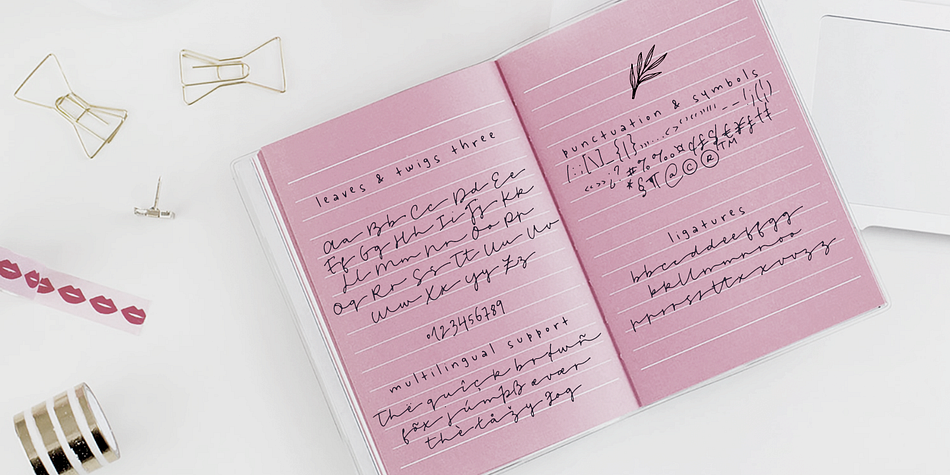 leaves & twigs three
Aa Bb Cc Dd Ee
Ff Gg Hh Ii Jj Kk
Ll Mm Nn Oo Pp
Qq Rr Ss Tt Uu Vv
Ww Xx Yy Zz
0123456789
multilingual support
thë quíçk brówñ
fõx júmpß ævær
thè låžy dog
punctuation & symbols
ligatures
bbccddeeffgg
kkllmmnnoo
pprrssttxxvvzz